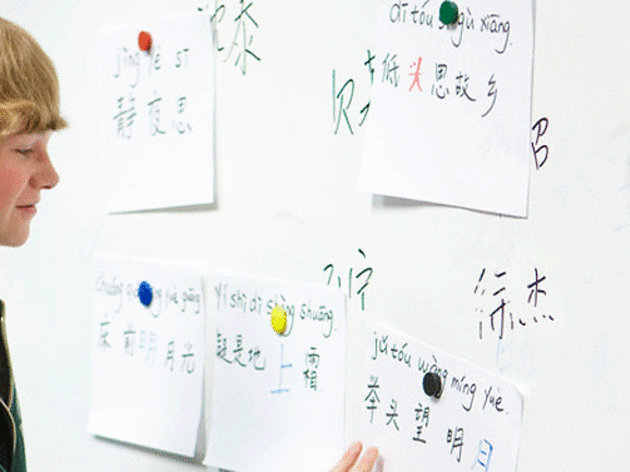 jìng yè sī
静夜思
dī tóu sī gù xiāng.
低头思故乡
床前明月光
yí shì dì shàng shuāng.
疑是地上霜
jǔ tóu wàng míng yuè.
举头望明月
徐杰